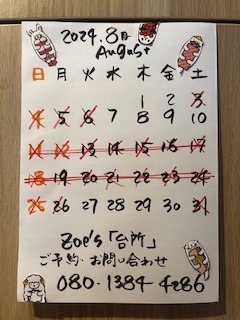 2024.8月
August
日 月 火 水 木 金 土
1 2 3
4 5 6 7 8 9 10
11 12 13 14 15 16 17
18 19 20 21 22 23 24
25 26 27 28 29 30 31
Zoe's「台所」
ご予約・お問い合わせ
080-1384-4286